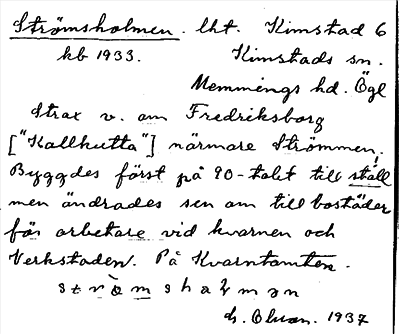 Strömsholmen. lht. Kimstad 6
kb 1933. Kimstads sn.
Memmings hd. Ögl
Strax v. om Fredriksborg
["Kallhutta"] närmare Strömmen.
Byggdes först på 90-talet till stall!
men ändrades sen om till bostäder
för arbetare vid kvarnen och
Verkstaden. På Kvarntomten.
1937